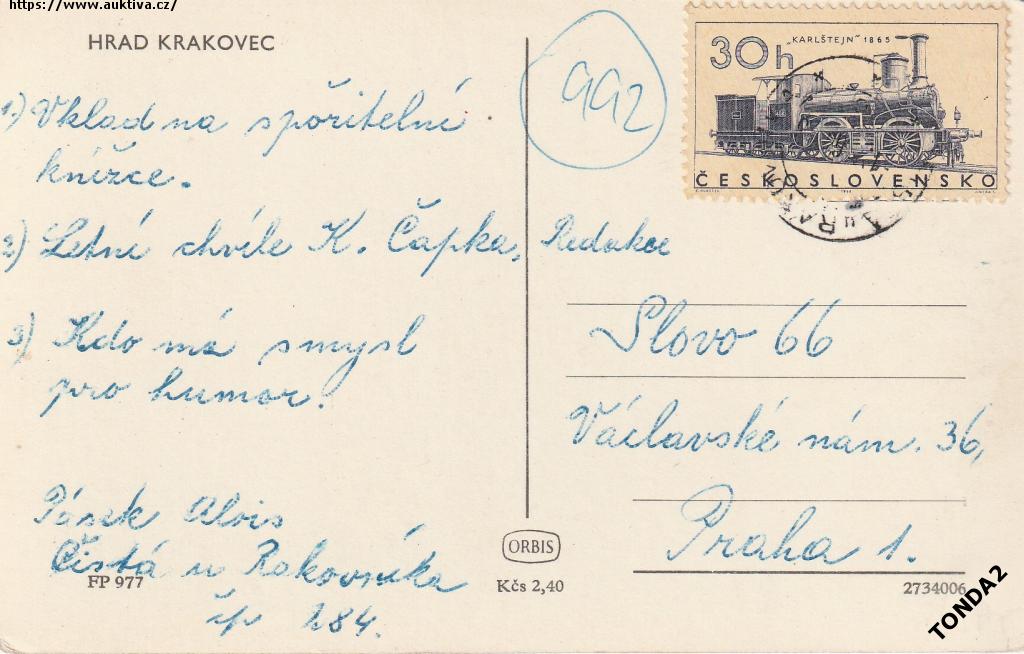 https://www.auktiva.cz/
HRAD KRAKOVEC
1) Vklad na spořitelní
knížce.
2) Letní chvíle K. Čapka,
3) Kdo má smysl
pro humor!
Pásek Alois
Čistá u Rakovníka
čp 284.
FP 977
992
30h „KARLŠTEJN" 1865
ČESKOSLOVENSKO
Redakce
Slovo 66
Václavské nám. 36,
Praha 1.
ORBIS
Kčs 2,40
2734006
TONDA2